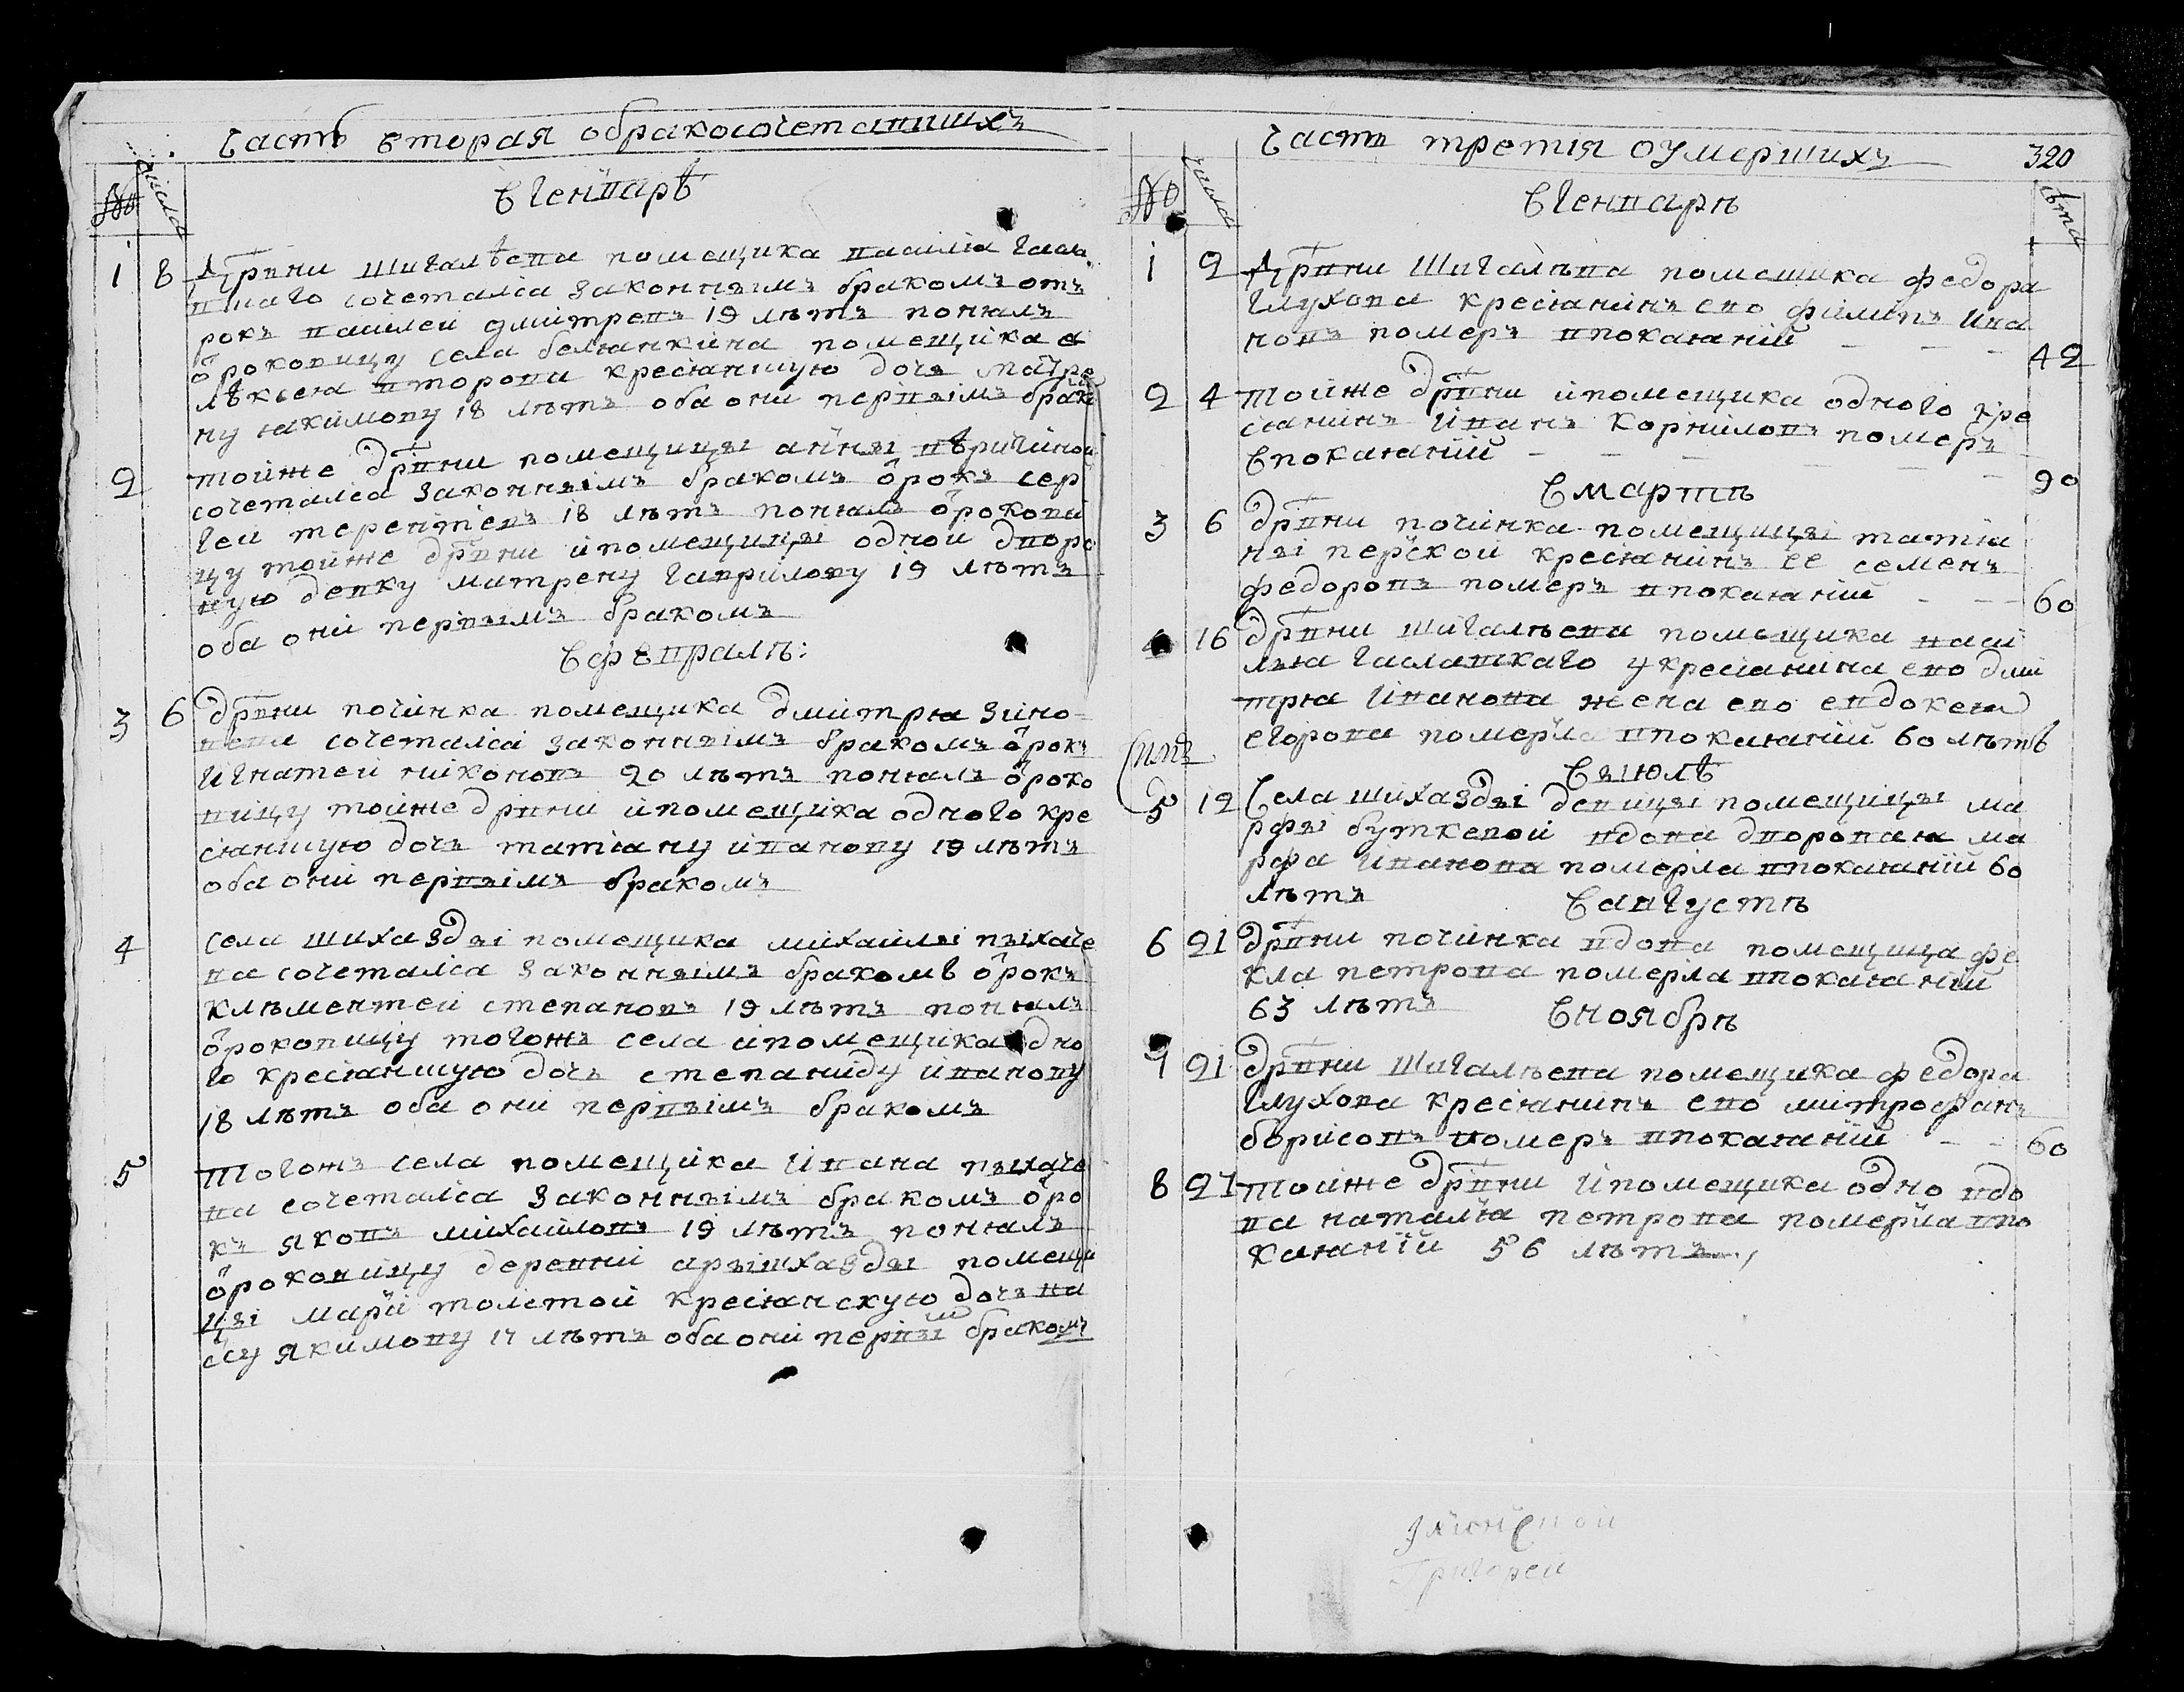 Часть вторая обракосочетавшихъ
№
числа
Вгенваръ
1 8 Дрвни Шигалѣева помещика василiа гасла
тцкаго сочетался законнымъ бракомъ отъ
рокъ василеи дмитревъ 19 лѣтъ понялъ
ѻроковицу села белянкина помещика а
лѣксея второва кресянскую дочь матре
ну якимову 18 лѣтъ оба они первымъ брак
2 тойже дрвни помещицы анны
сочетался законнымъ бракомъ ѻрокъ сер
геи терентiевъ 18 лѣтъ понялъ ѻрокови
цу тойже дрвни ипомещицы одной дворо
вую девку матрену гаврилову 19 лѣтъ
оба они первымъ бракомъ
Вфевралѣ:
3 6 дрвни починка помещика Дмитрея зино
вева сочетался законнымъ бракомъ ѻрокъ
игнатеи никоновъ 20 лѣтъ понялъ ѻроко
вицу тойже дрвни ипомещика одного кре
сянскую дочь татiану иванову 19 лѣтъ
оба они первымъ бракомъ
4 села шихазды помещика михаилы пыхаче
ва сочетался законнымъ бракомъ ѻрокъ
клѣментеи степановъ 19 лѣтъ понялъ
ѻроковицу тогожъ села ипомещика одно
го кресянскую дочь степаниду иванову
18 лѣтъ оба они первымъ бракомъ
5 Тогожъ села помещика Ивана пыхаче
ва сочетался законнымъ бракомъ ѻро
къ яковъ михаиловъ 19 лѣтъ понялъ
ѻроковицу деревни арышхазды помещи
цы марiи толстой кресянскую дочь на
су якимову 17 лѣтъ оба они первым бракомъ
Часть третiя оумершихъ 320
№
числа
Вгенварѣ
лѣта
1 2 Дрвни Шигалѣва помещика федора
глухова кресянинъ ево филипъ ива
новъ померъ впокаянии 42
2 4 тойже дрвни ипомещика одного кре
сянинъ Иванъ Корниловъ померъ
впокаянии 90
Вмартѣ
3 6 дрвни починка помещицы татiа
ны перской кресянинъ ее семенъ
федоровъ померъ впокаянии 60
4 16 дрвни шигалѣева помещика васи
лья гаслатцкаго у кресянина ево дми
трея Иванова жена ево евдокея
егорова померла впокаянии 60 лѣтъ
Выюлѣ
5 12 Села шихазды девицы помещицы ма
рфы буткевой вдова дворовая ма
рфа Иванова померла впокаянии 60
лѣтъ
Вавгустѣ
6 21 дрвни починка вдова помещица фе
кла петрова померла впокаянии
63 лѣтъ
Вноябрѣ
7 21 дрвни Шигалѣева помещика федора
Глухова кресянинъ ево митрофанъ
борисовъ померъ впокаянии 60
8 27 тойже дрвни Ипомещика одно вдо
ва наталiа петрова померла впо
каянии 56 лѣтъ
Григореи